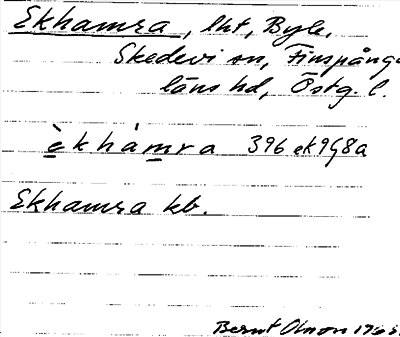 Ekhamra, lht, Byle,
Skedevi sn, Finspånga
läns hd, Östg. l.
èkhàmra 396 ek 98a
Ekhamra kb.
Bernt Olsson